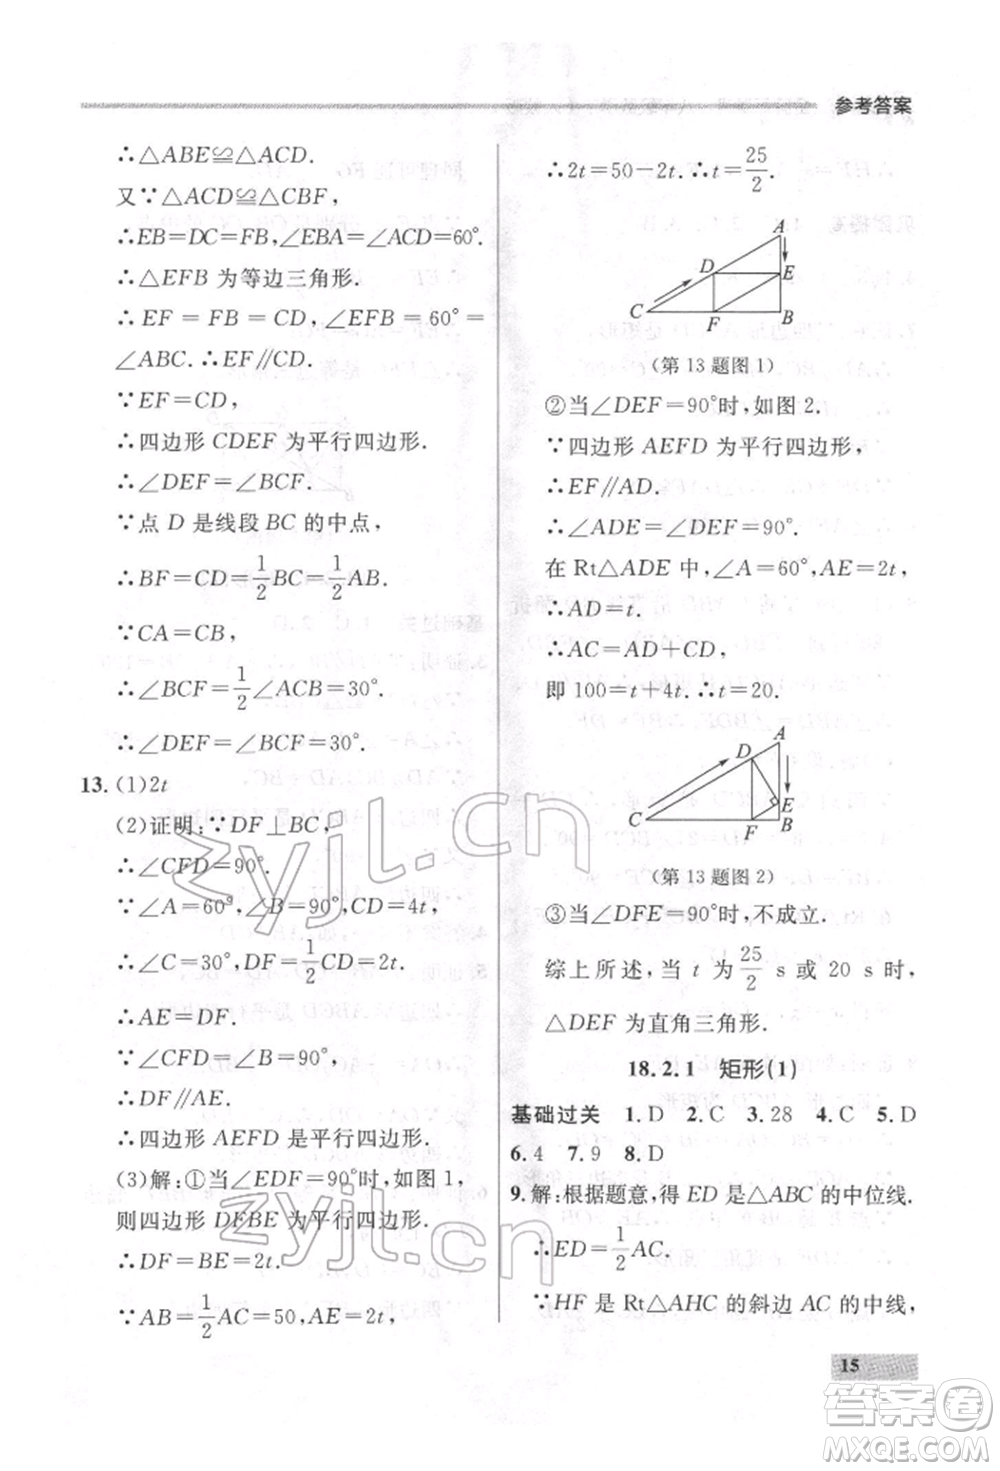 参考答案
∴△ABE≌△ACD.
又∵△ACD≌△CBF,
∴EB=DC=FB,∠EBA=∠ACD=60°.
∴△EFB 为等边三角形.
∴EF=FB=CD,∠EFB=60°=
∠ABC.∴EF∥CD.
∵EF=CD,
∴四边形 CDEF 为平行四边形.
∴∠DEF=∠BCF.
∵点 D 是线段 BC 的中点,
∴BF=CD=1/2BC=1/2AB.
∵CA=CB,
∴∠BCF=1/2∠ACB=30°.
∴∠DEF=∠BCF=30°.
13.(1)2t
(2)证明:∵DF⊥BC,
∴∠CFD=90°.
∵∠A=60°,∠B=90°,CD=4t,
∴∠C=30°,DF=1/2CD=2t.
∴AE=DF.
∵∠CFD=∠B=90°,
∴DF∥AE.
∴四边形 AEFD 是平行四边形.
(3)解:①当∠EDF=90°时,如图 1,
则四边形 DFBE 为平行四边形.
∴DF=BE=2t.
∵AB=1/2AC=50,AE=2t,
∴2t=50-2t.∴t=25/2.
A
D
E
C
F
B
(第 13 题图 1)
②当∠DEF=90°时,如图 2.
∵四边形 AEFD 为平行四边形,
∴EF∥AD.
∴∠ADE=∠DEF=90°.
在 Rt△ADE 中,∠A=60°,AE=2t,
∴AD=t.
∴AC=AD+CD,
即 100=t+4t.∴t=20.
A
D
E
C
F
B
(第 13 题图 2)
③当∠DFE=90°时,不成立.
综上所述,当 t 为 25/2 s 或 20 s 时,
△DEF 为直角三角形.
18.2.1 矩形(1)
基础过关 1.D 2.C 3.28 4.C 5.D
6.4 7.9 8.D
9.解:根据题意,得 ED 是△ABC 的中位线.
∴ED=1/2AC.
∵HF 是 Rt△AHC 的斜边 AC 的中线,
15
zyjl.cn
zyjl.cn
答案卷
MXQE.COM